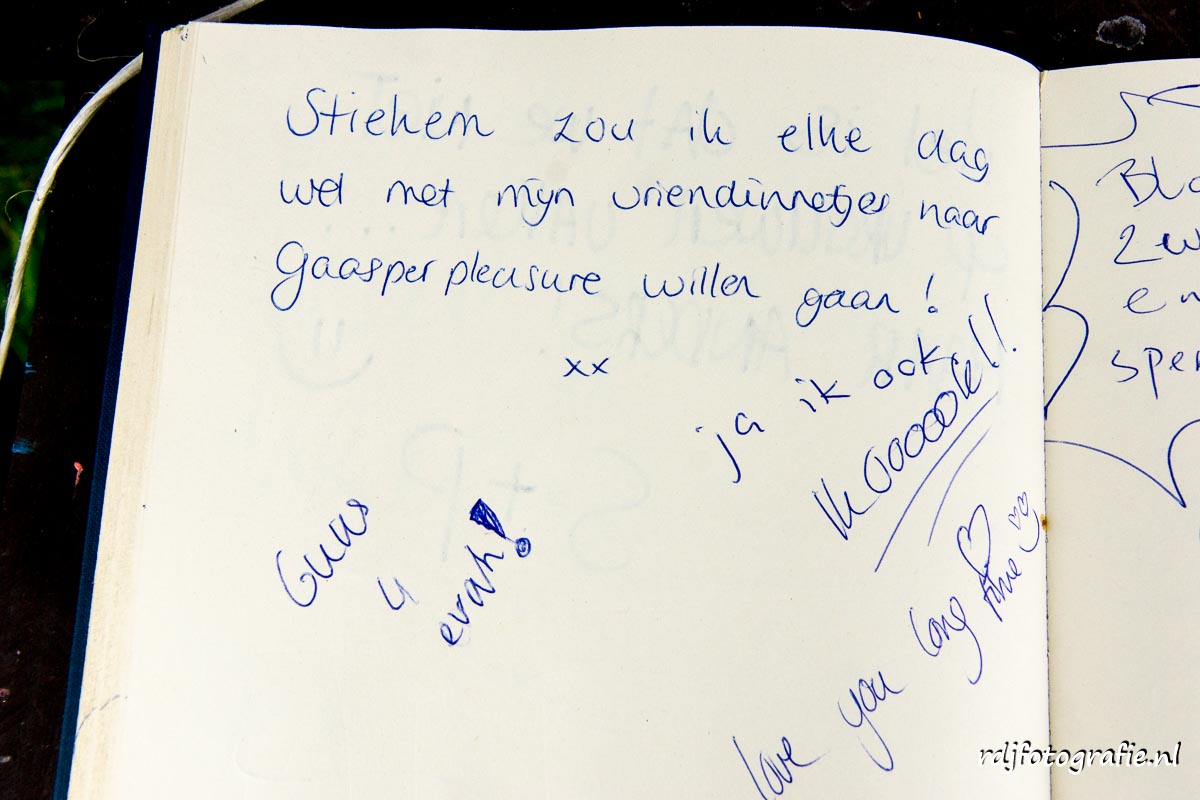 Stiekem zou ik elke dag
wel met mijn vriendinnetjes naar
Gaasperpleasure willen gaan!
xx
ja ik ook!!
Ik Ooooook!
4
evah!
love you long time
2
sper
rdjfotografie.nl